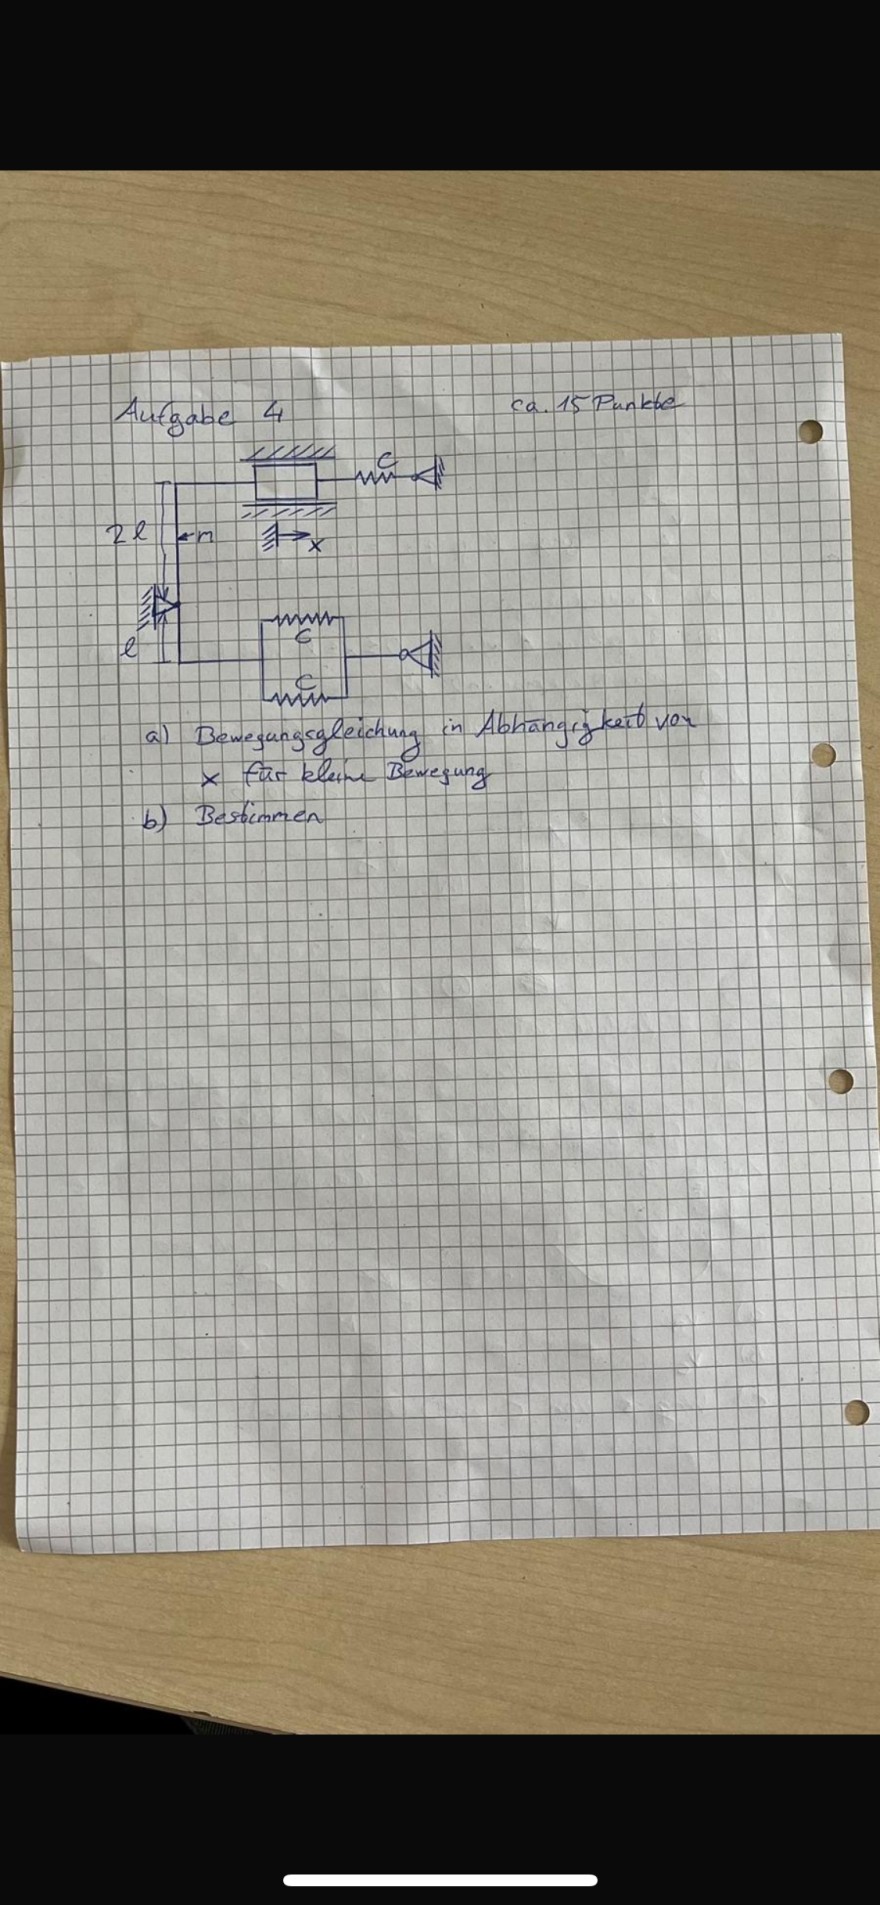 Aufgabe 4 ca. 15 Punkte
c
2l
m
x
l
c
c
a) Bewegungsgleichung in Abhängigkeit von
x für kleine Bewegung
b) Bestimmen